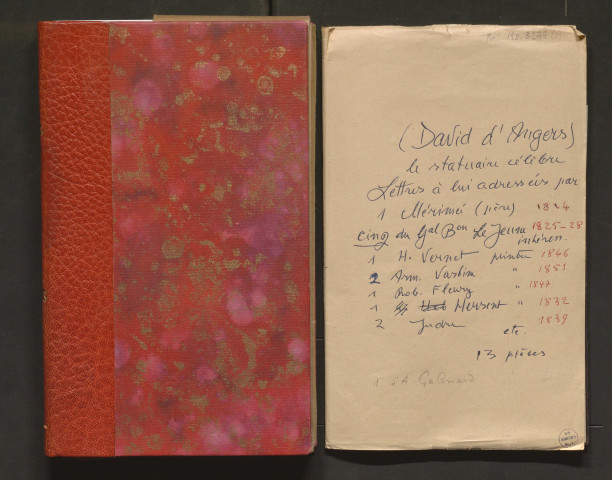 (David d'Angers)
le statuaire célèbre
Lettres à lui adressées par
1 Mérimée (père) 1824
cinq du Gal Bon Le Jeune 1825-28
intéress.
1 H. Vernet peintre 1846
2 Arm. " 1851
1 Rob. Fleury " 1847
1 Hersent " 1832
2 1839
etc.
13 pièces
1 d'A